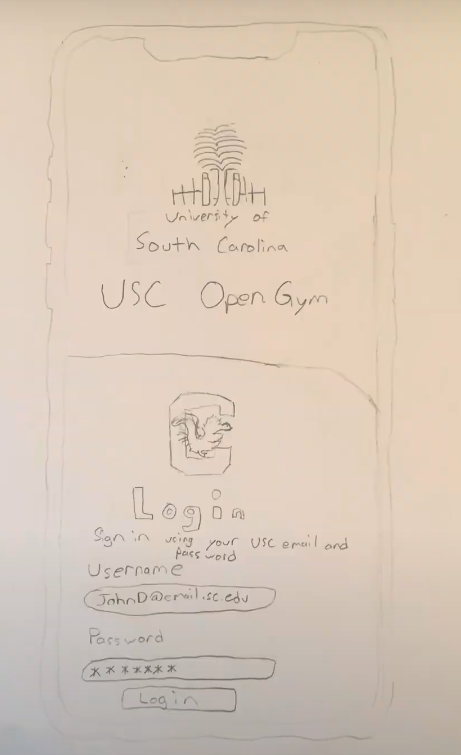 University of
South Carolina
USC Open Gym
Login
Sign in using your USC email and
password
Username
JohnD@email.sc.edu
Password
*******
Login